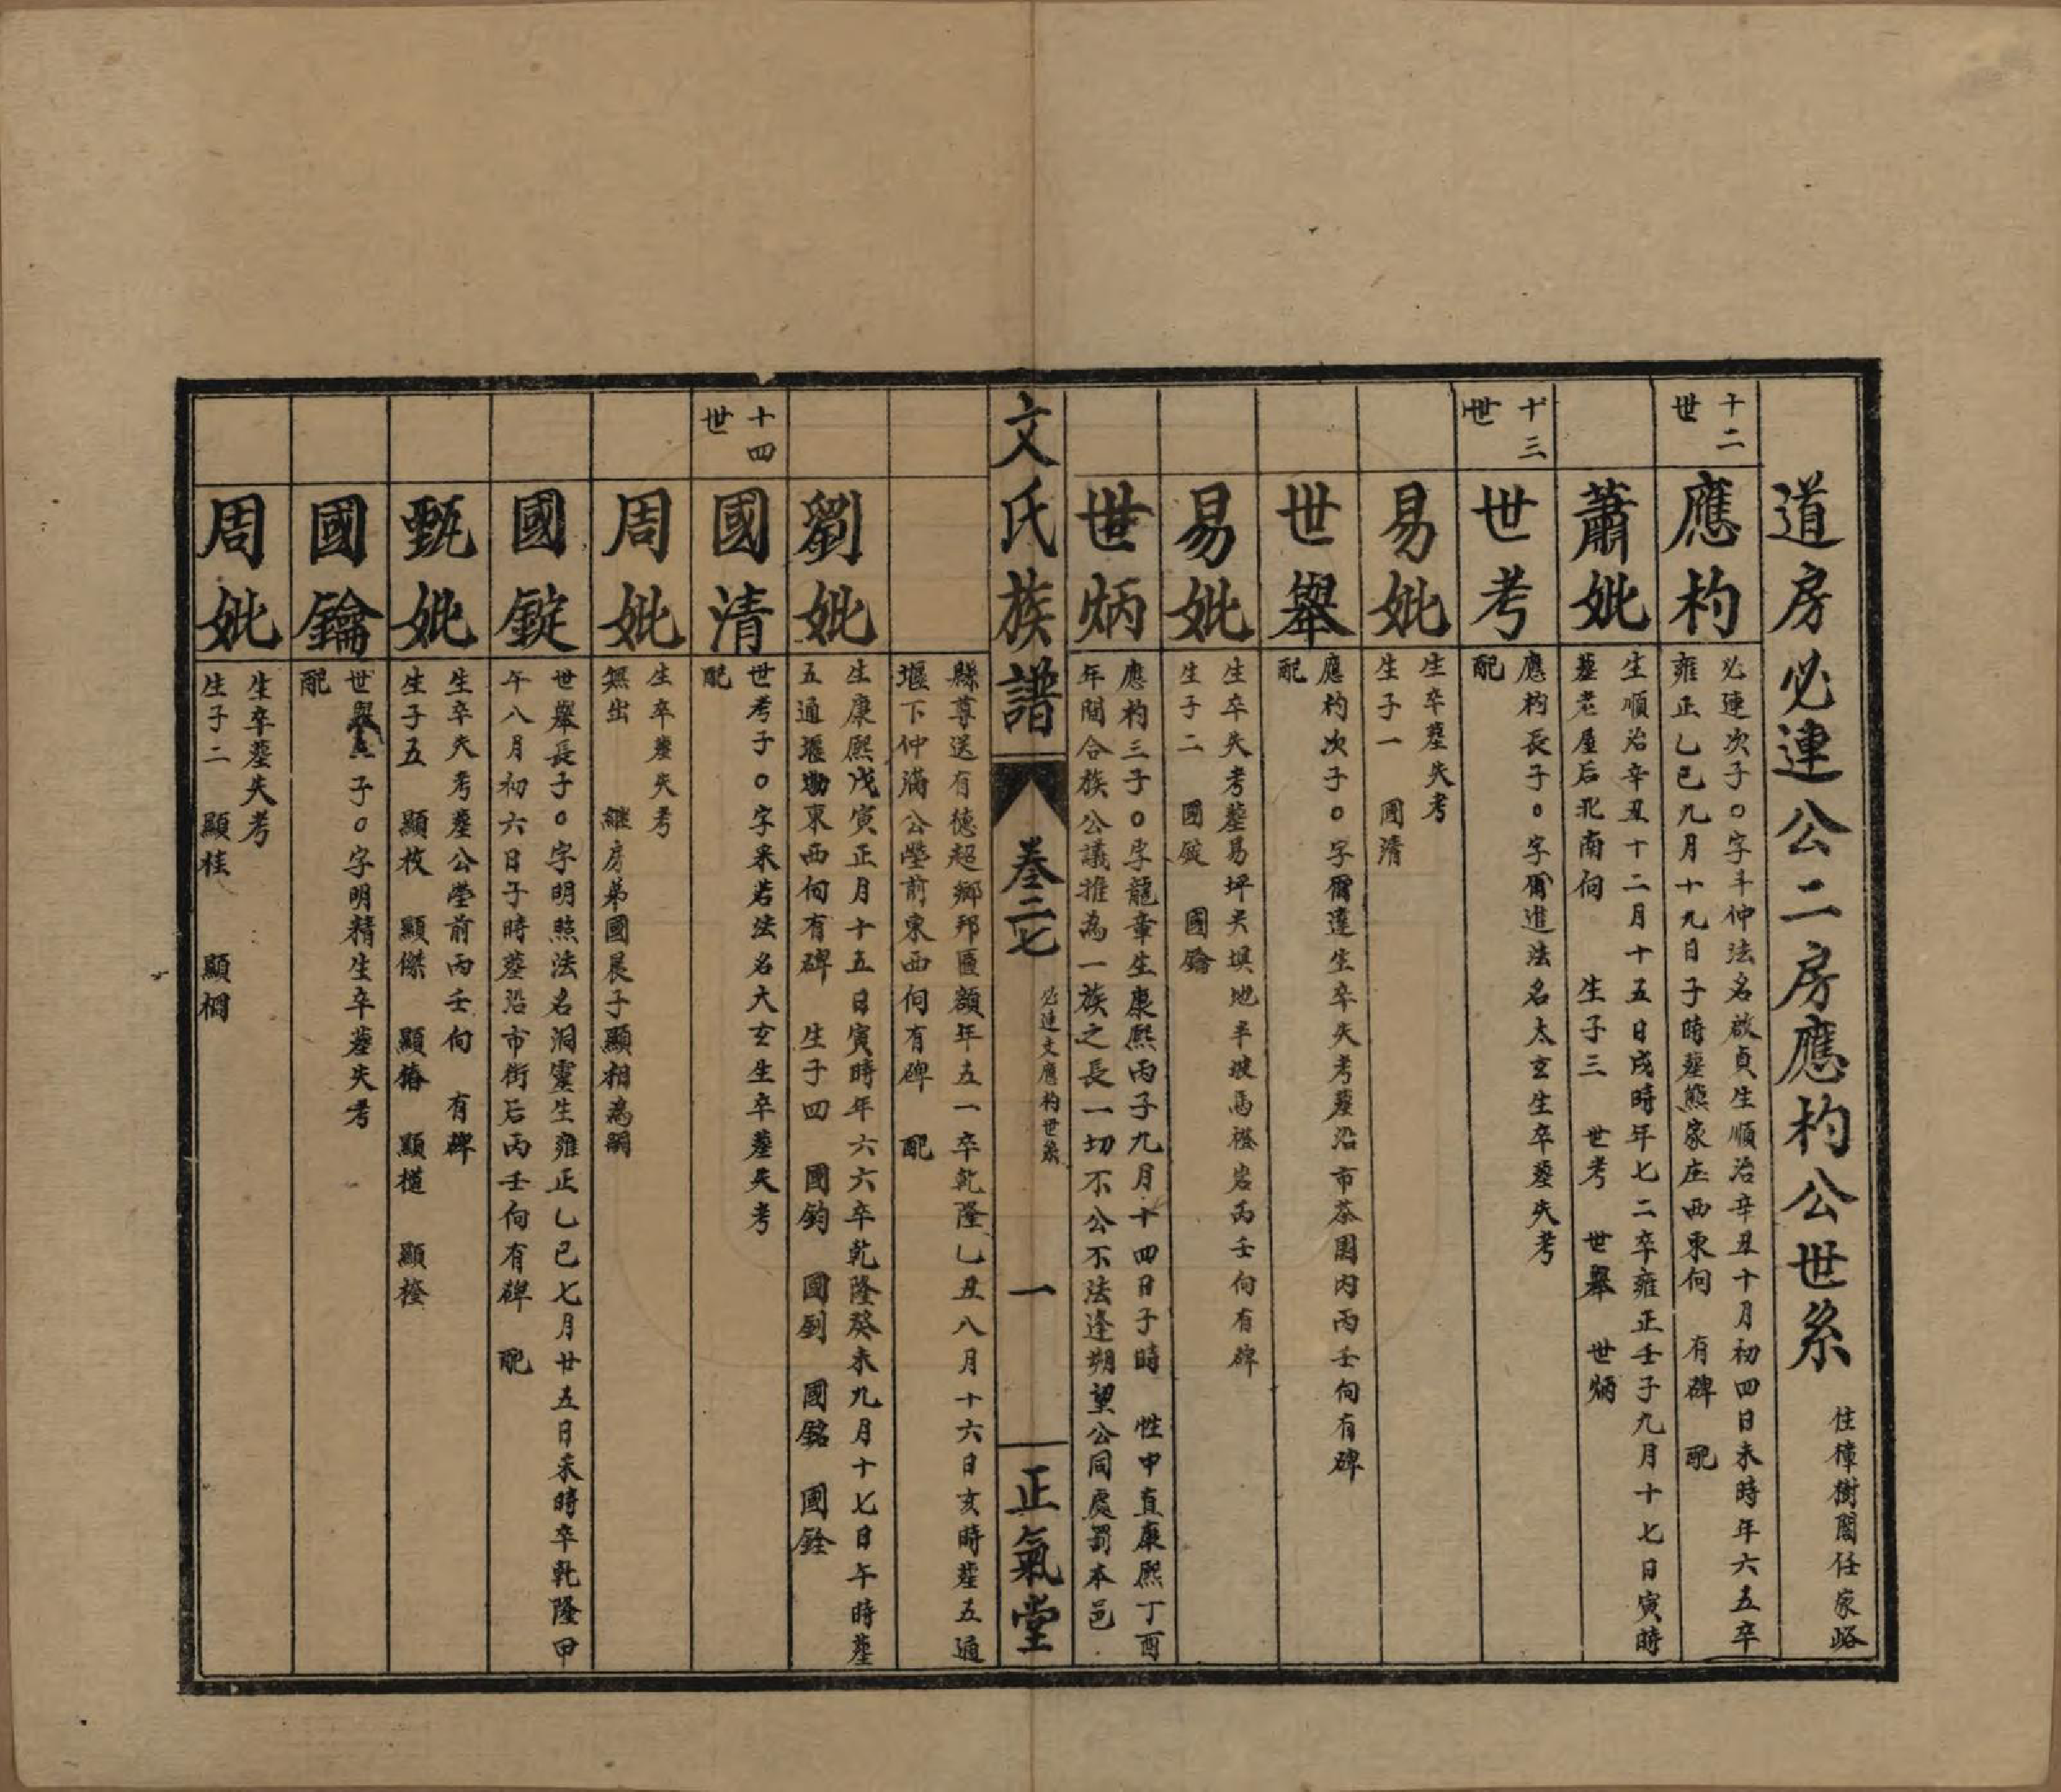 道房必連公二房應杓公世系
住樟樹閣任家峪
十二世
應杓
必連次子○字斗仲法名啟貞生順治辛丑十月初四日未時年六五卒
雍正乙巳九月十九日子時塟熊家庄西東向 有碑 配
蕭妣
生順治辛丑十二月十五日戌時年七二卒雍正壬子九月十七日寅時
塟老屋后北南向 生子三 世考 世舉 世炳
十三世
世考
應杓長子○字爾進法名太玄生卒塟失考
配
易妣
生卒塟失考
生子一 國清
世舉
應杓次子○字爾達生卒失考塟沿市茶園内丙壬向有碑
配
易妣
生卒失考塟易坪尖堌地半坡馬褡岩丙壬向有碑
生子二 國錠 國鑰
世炳
應杓三子○字龍章生康熙丙子九月十四日子時 性中直康熙丁酉
年間合族公議推為一族之長一切不公不法逢朔望公同處罰本邑
文氏族譜
卷二七
必連支應杓世系
一
正氣堂
縣尊送有德超鄉邦匾額年五一卒乾隆乙丑八月十六日亥時塟五通
堰下仲滿公塋前東西向有碑 配
劉妣
生康熙戊寅正月十五日寅時年六六卒乾隆癸未九月十七日午時塟
五通堰坳東西向有碑 生子四 國鈞 國釗 國銘 國銓
十四世
國清
世考子○字采若法名大玄生卒塟失考
配
周妣
生卒塟失考
無出 繼房弟國晨子顯相為嗣
國錠
世舉長子○字明照法名洞靈生雍正乙巳七月廿五日未時卒乾隆甲
午八月初六日子時塟沿市街后丙壬向有碑 配
甄妣
生卒失考塟公塋前丙壬向 有碑
生子五 顯枚 顯傑 顯椿 顯槤 顯栓
國鑰
世舉次子○字明精生卒塟失考
配
周妣
生卒塟失考
生子二 顯桂 顯榈